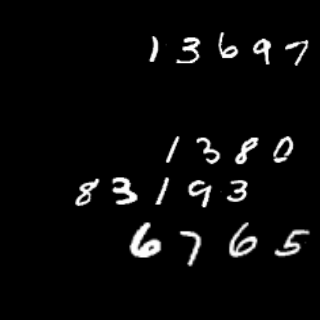 13697
1380
83193
6765